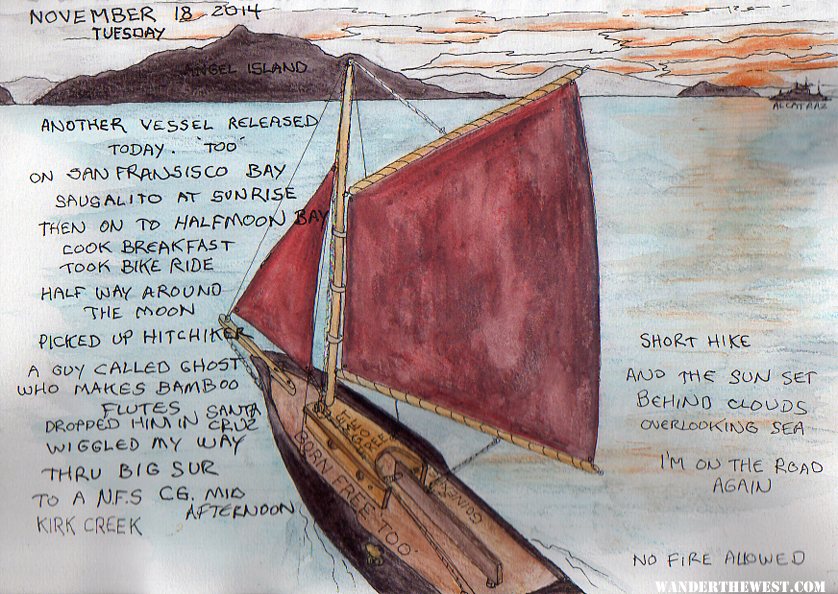 NOVEMBER 18 2014
TUESDAY
ANGEL ISLAND
ALCATRAZ
ANOTHER VESSEL RELEASED
TODAY. "TOO"
ON SAN FRANSISCO BAY
SAUGALITO AT SUNRISE
THEN ON TO HALFMOON BAY
COOK BREAKFAST
TOOK BIKE RIDE
HALF WAY AROUND
THE MOON
PICKED UP HITCHIKER
A GUY CALLED GHOST
WHO MAKES BAMBOO
FLUTES
DROPPED HIM IN SANTA CRUZ
WIGGLED MY WAY
THRU BIG SUR
TO A N.F.S CG. MID
AFTERNOON
KIRK CREEK
BORN FREE TOO
SHORT HIKE
AND THE SUN SET
BEHIND CLOUDS
OVERLOOKING SEA
I'M ON THE ROAD
AGAIN
NO FIRE ALLOWED
WANDERTHEWEST.COM